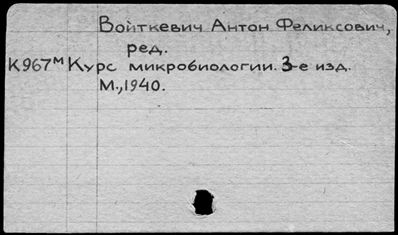 Войткевич Антон Феликсович,
ред.
К967м Курс микробиологии. 3-е изд.
М.,1940.